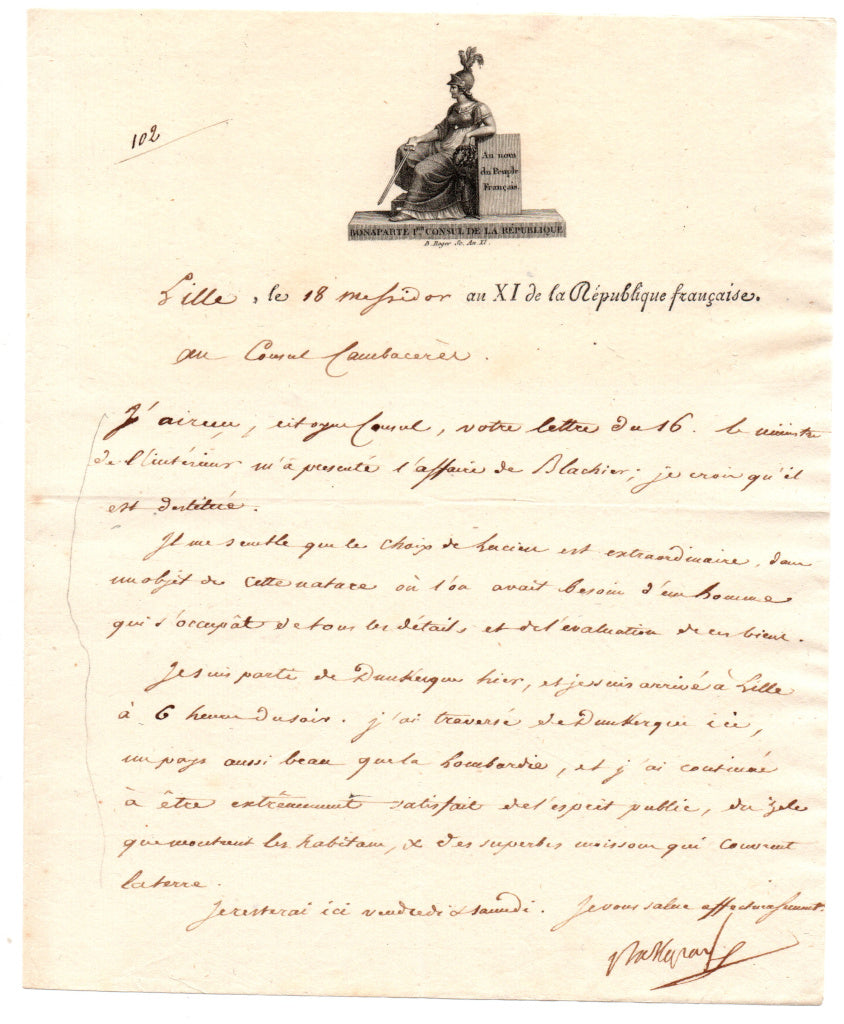 102
Au nom
du Peuple
Français.
BONAPARTE 1er CONSUL DE LA RÉPUBLIQUE
B. Roger Sc. An XI.
Lille, le 18 messidor an XI de la République française.
au Consul Cambacérès.
J'ai reçu, citoyen Consul, votre lettre du 16. le ministre
de l'intérieur m'a presenté l'affaire de Blachier; je crois qu'il
est destitué.
Il me semble que le choix de Lucien est extraordinaire, dans
un objet de cette nature où l'on avait besoin d'un homme
qui s'occupât de tous les détails et de l'évaluation de ces biens.
Je suis parti de Dunkerque hier, et je suis arrivé à Lille
à 6 heures du soir. j'ai traversé de Dunkerque ici,
un pays aussi beau que la Lombardie, et j'ai continué
à être extrêmement satisfait de l'esprit public, du zele
que montrent les habitans, & des superbes moissons qui couvrent
la terre.
Je resterai ici vendredi & samedi. Je vous salue affectueusement.